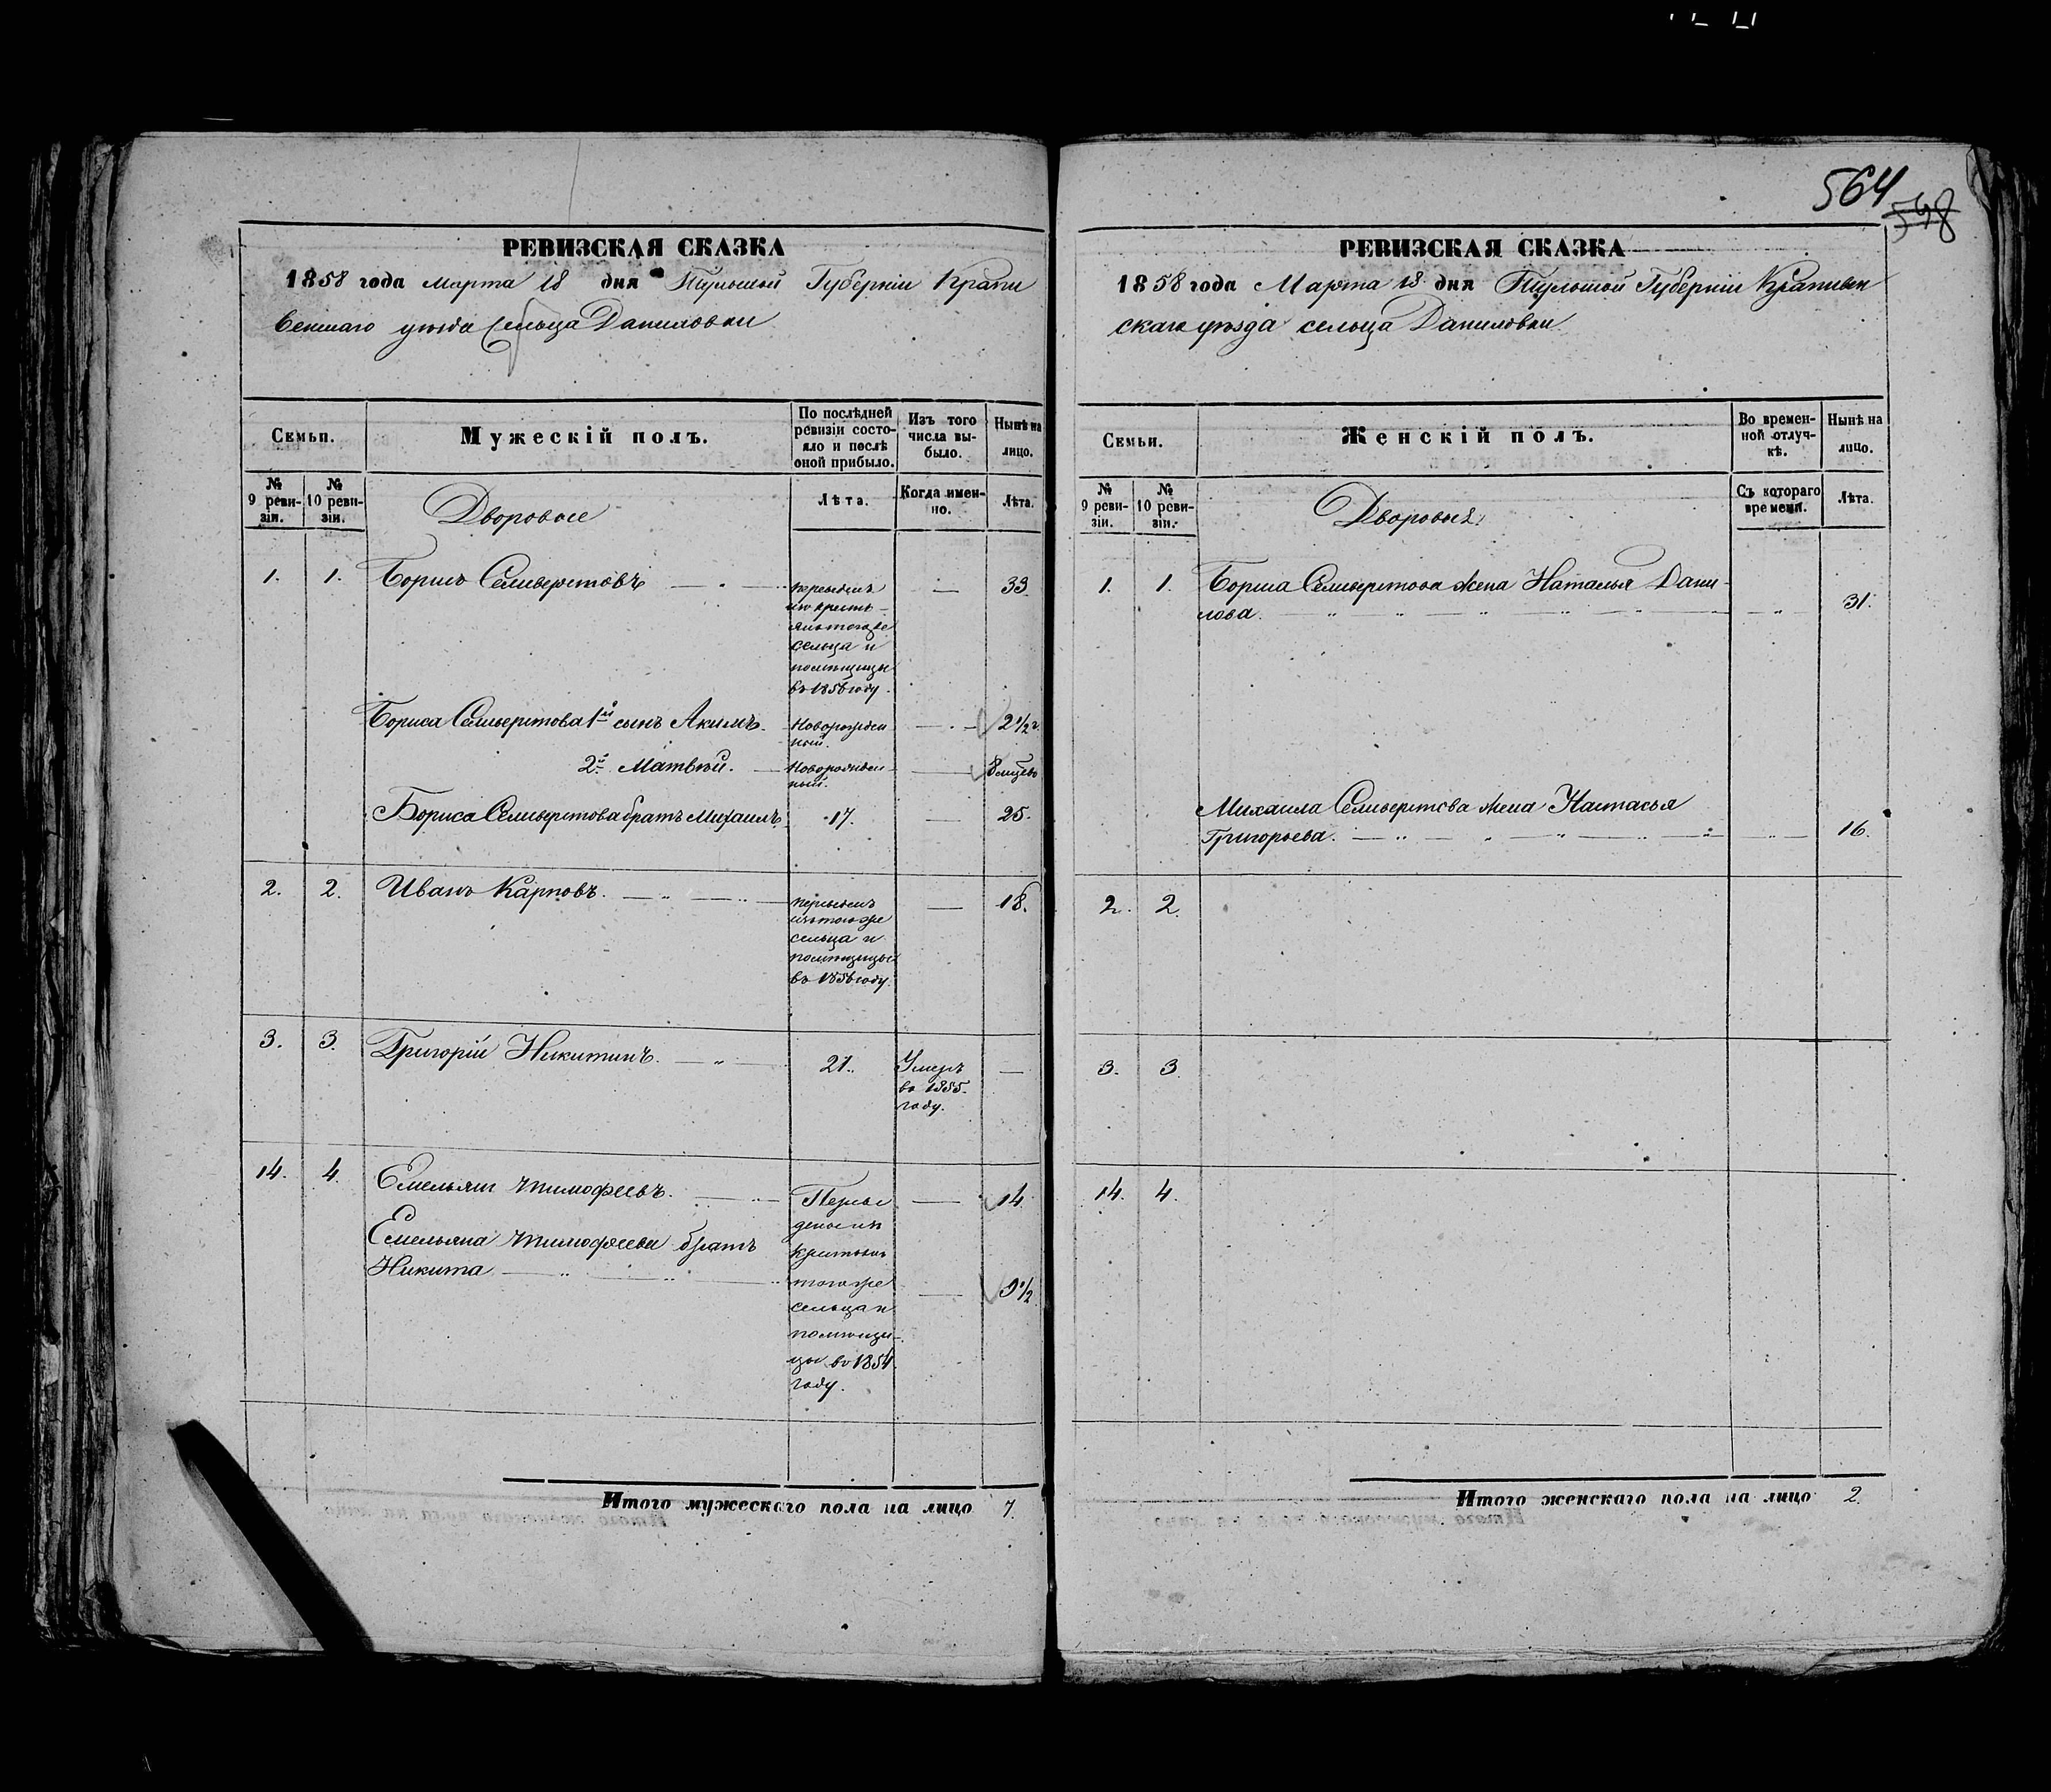 564
548
РЕВИЗСКАЯ СКАЗКА
1858 года марта 18 дня Тульской Губерніи Крапи
венскаго уѣзда Сельца Даниловки
Семьи.
Мужескій полъ.
По послѣдней ревизіи состояло и послѣ оной прибыло.
Изъ того числа выбыло.
Нынѣ на лицо.
№ 9 ревизіи.
№ 10 ревизіи.
Дворовые
Лѣта.
Когда именно.
Лѣта.
1. 1. Борисъ Селиверстовъ — 33
переведенъ
изъ кресть-
янъ тогоже
сельца и
помѣщицы
въ 1858 году.
Бориса Селиверстова 1й сынъ Акимъ. Новорожден — 2 1/2 г.
ный.
2й Матвѣй. Новорожден- — 8 мцевъ
ный.
Бориса Селиверстова братъ Михаилъ. 17. — 25.
2. 2. Иванъ Карповъ. — 18.
переведенъ
изъ тогоже
сельца и
помѣщицы
въ 1858 году.
3. 3. Григорій Никитинъ. 21. Умеръ —
въ 1855.
году.
14. 4. Емельянъ Тимофеевъ. Переве — 14.
Емельяна Тимофеева братъ
Никита — 9 1/2
денъ изъ
крестьянъ
тогоже
сельца и
помѣщи-
цы въ 1854.
году.
Итого мужескаго пола на лицо 7.
РЕВИЗСКАЯ СКАЗКА
1858 года Марта 18 дня Тульской Губерніи Крапивен
скаго уѣзда сельца Даниловки
Семьи.
Женскій полъ.
Во временной отлучкѣ.
Нынѣ на лицо.
№ 9 ревизіи.
№ 10 ревизіи.
Дворовые.
Съ котораго времени.
Лѣта.
1. 1. Бориса Селиверстова жена Наталья Дани-
лова. 31.
Михаила Селиверстова жена Настасья
Григорьева. 16.
2. 2.
3. 3.
14. 4.
Итого женскаго пола на лицо 2.